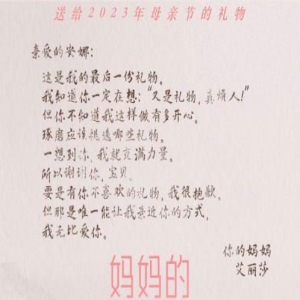 送给2023年母亲节的礼物
亲爱的安娜：
这是我的最后一份礼物。
我知道你一定在想：“又是礼物，真烦人！”
但你不知道我这样做有多开心。
琢磨应该挑选哪些礼物。
一想到你，我就充满力量。
所以谢谢你，宝贝。
要是有你不喜欢的礼物，我很抱歉。
但那是唯一能让我亲近你的方式。
我无比爱你。
你的妈妈
艾丽莎
妈妈的